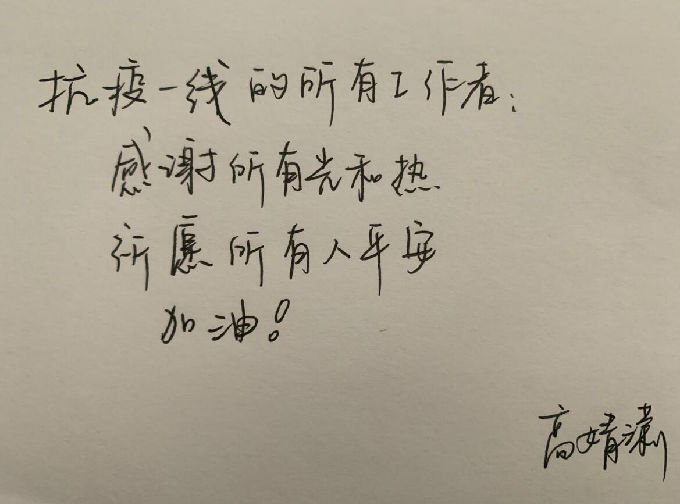 抗疫一线的所有工作者:
感谢所有光和热
祈愿所有人平安
加油!
高婧潇